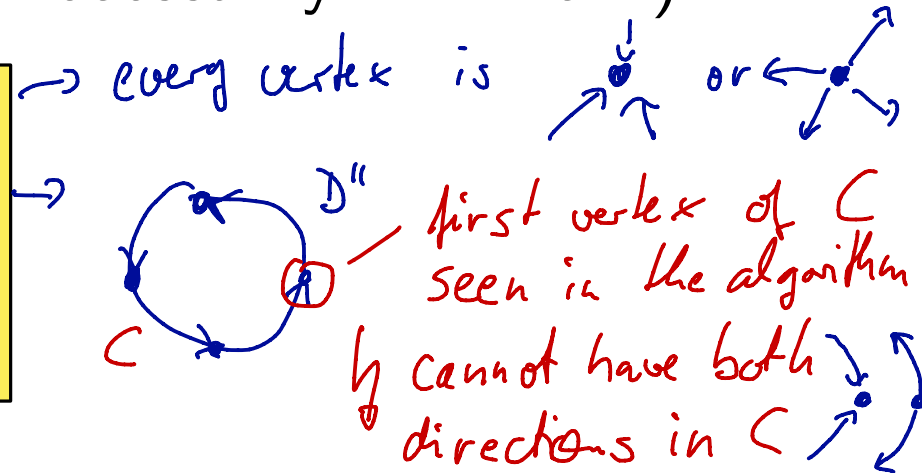 every vertex is or
D"
first vertex of C
seen in the algorithm
C
cannot have both
directions in C